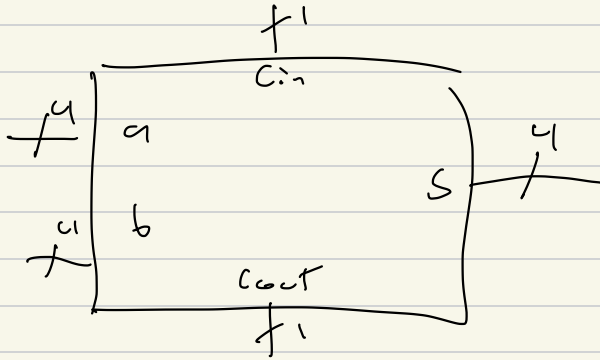 1
Cin
4
a
4
S
4
b
Cout
1